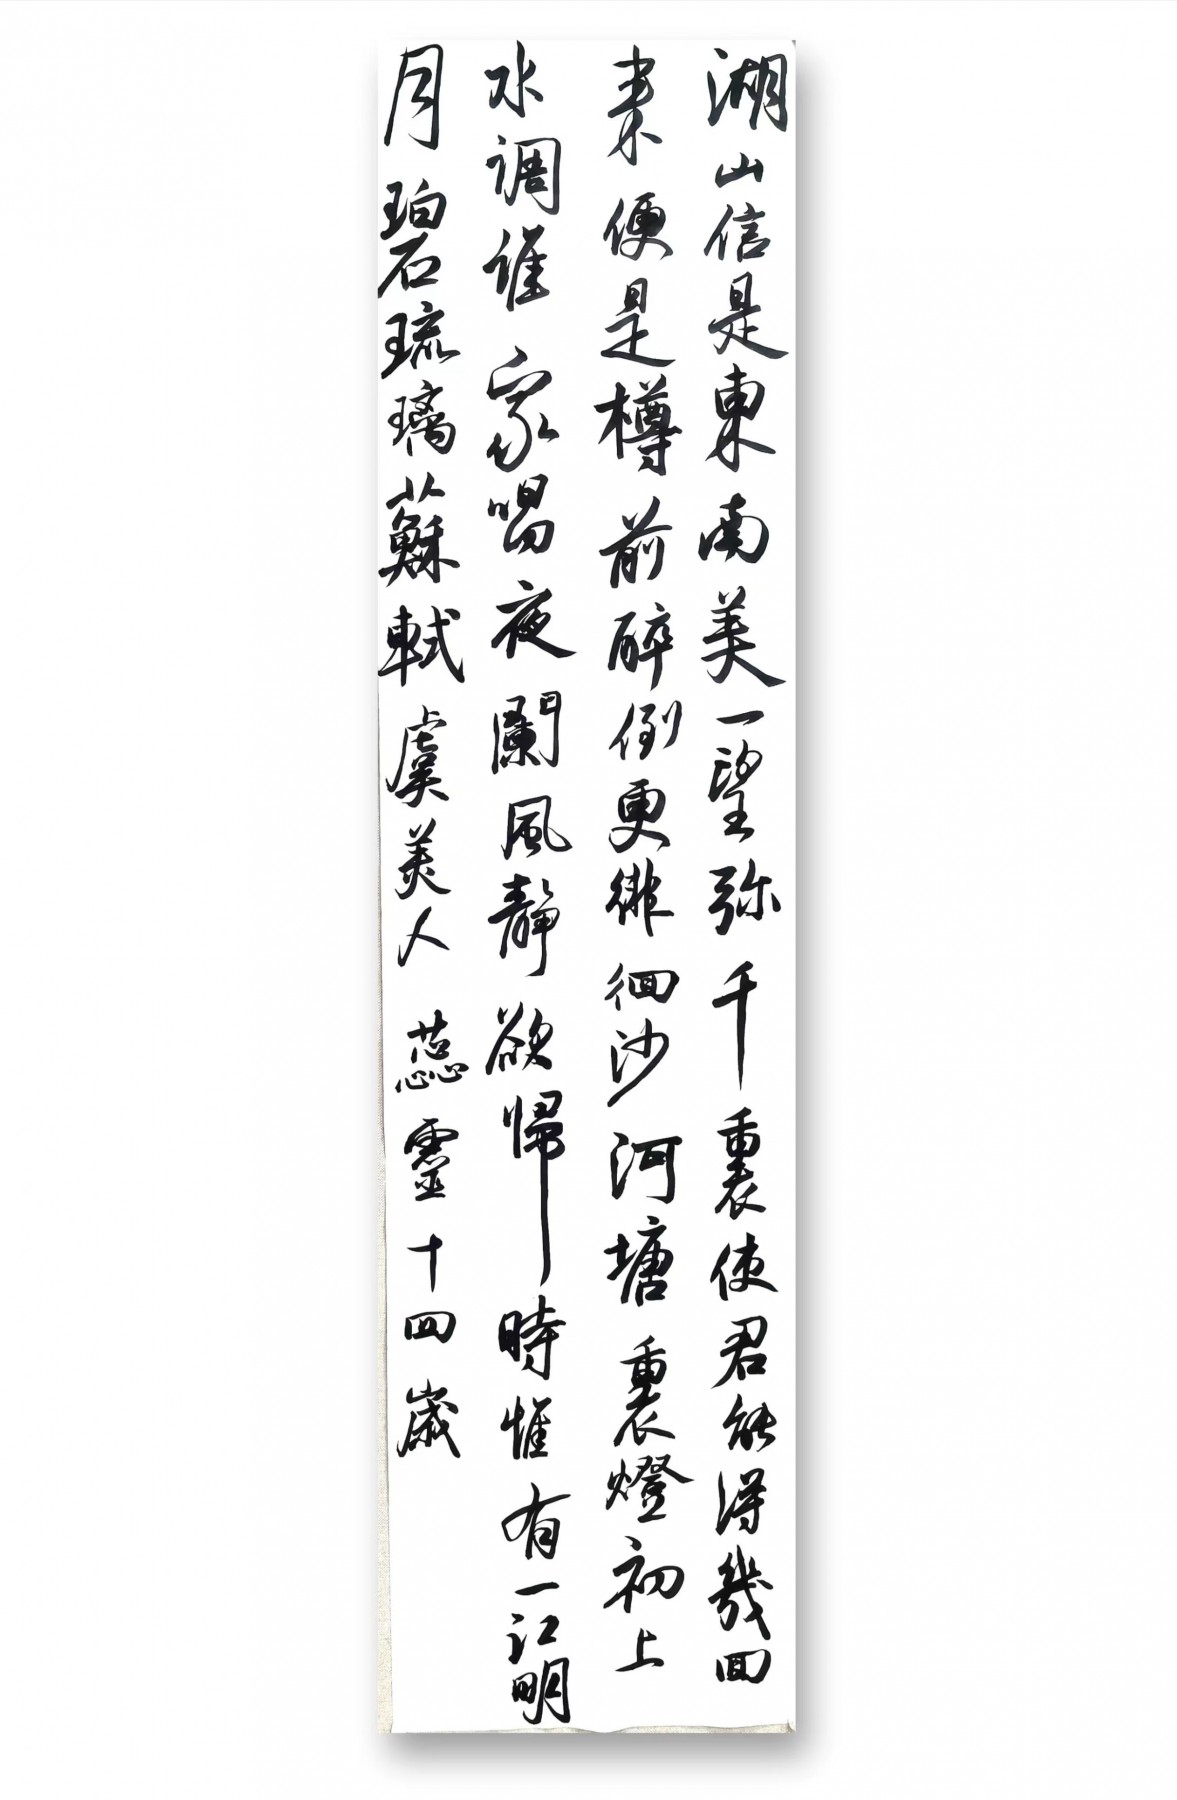 湖山信是東南美一望弥千裏使君能得幾回
来便是樽前醉倒更徘徊沙河塘裏燈初上
水调谁家唱夜闌風静欲帰時惟有一江明
月碧琉璃蘇軾虞美人 蕊靈十四歲